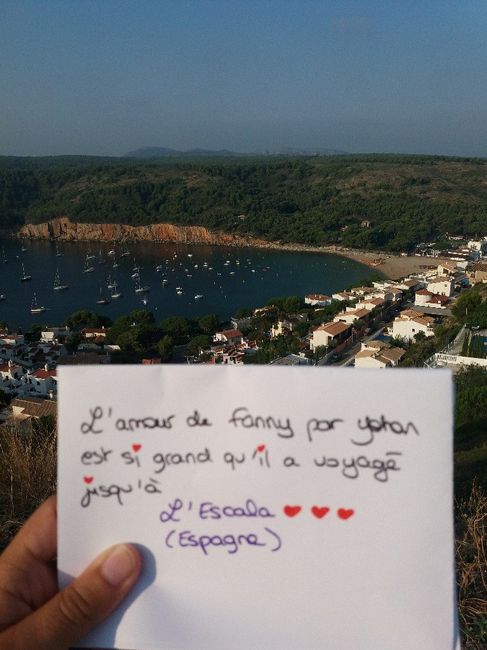 L'amour de Fanny por yohan
est si grand qu'il a voyagé
jusqu'à
L'Escala ♥♥♥
(Espagne)